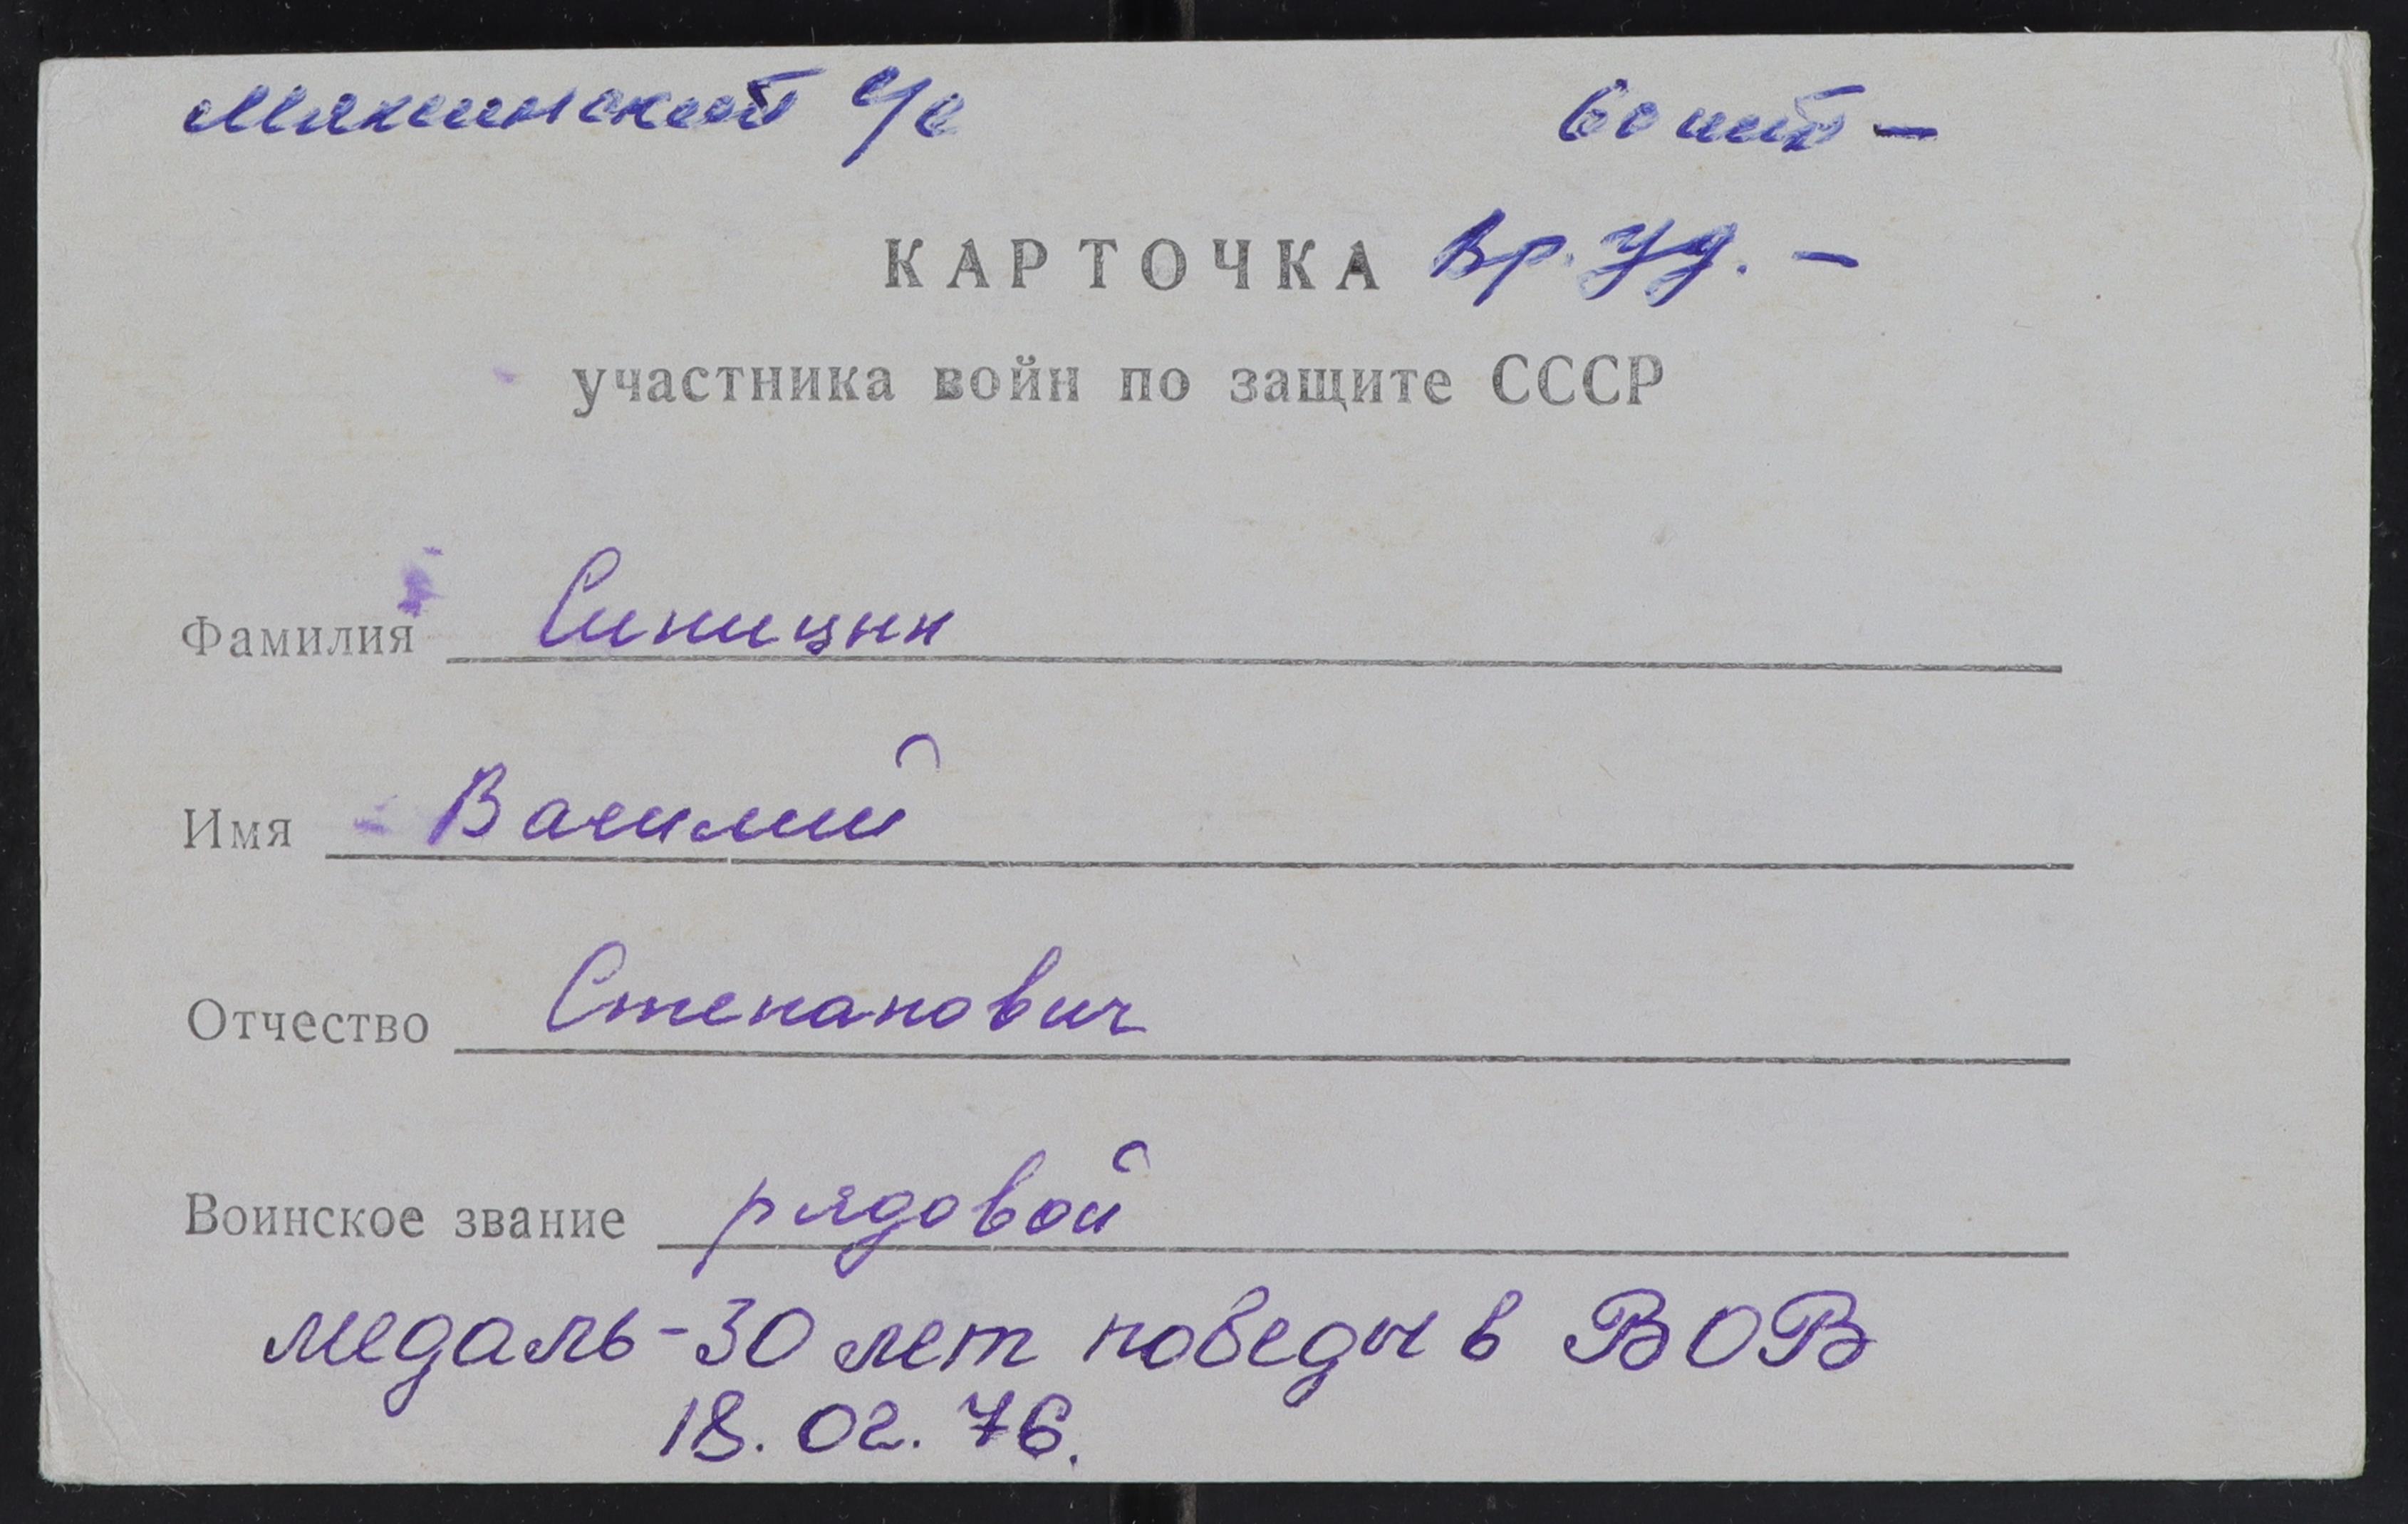 Мякишский с/с
КАРТОЧКА вр. уд. –
участника войн по защите СССР
Фамилия Синицин
Имя Василий
Отчество Степанович
Воинское звание рядовой
медаль-30 лет победы в ВОВ
18.02.76.